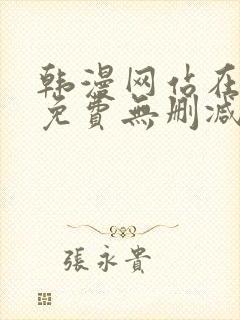 韩漫网站在
免費無删减
張永貴